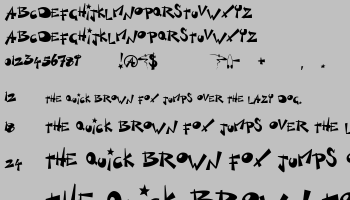 ABCDEFGHIJKLMNOPQRSTUVWXYZ
ABCDEFGHIJKLMNOPQRSTUVWXYZ
0123456789 !@$
12 THE QUICK BROWN FOX JUMPS OVER THE LAZY DOG.
18 THE QUICK BROWN FOX JUMPS OVER THE L
24 THE QUICK BROWN FOX JUMPS O
THE QUICK BROWN